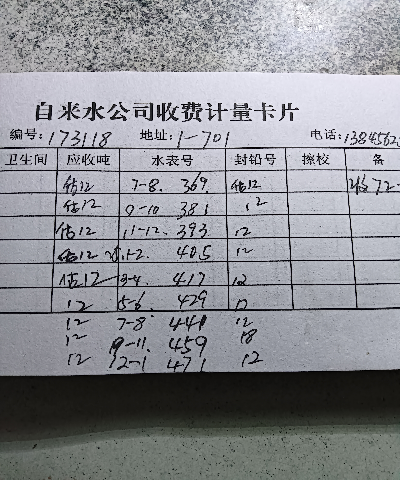 自来水公司收费计量卡片
编号:173118 地址:1-701 电话:1384562
卫生间 应收吨 水表号 封铅号 擦校 备
估12 7-8. 369. 估12 72-
估12 9-10 381 12
估12 11-12. 393 12
估12 1-2. 405 12
估12 3-4. 417 12
12 5-6. 429 12
12 7-8. 441 12
12 9-11. 459 18
12 12-1 471 12